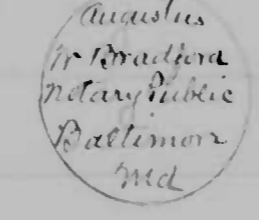 Augustus
W Bradford
Notary Public
Baltimore
Md